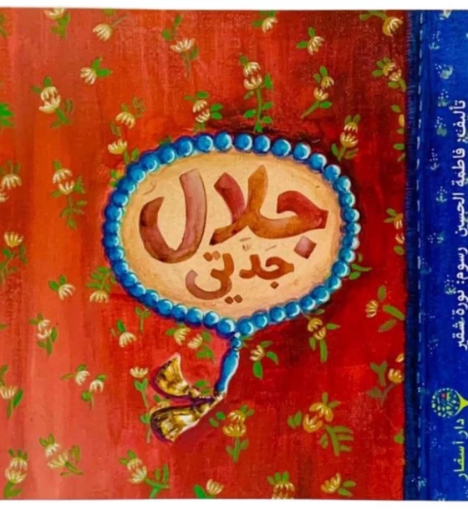 جلال
جَدّتي
تأليف: فاطمة الحسين رسوم: نورة شقير
دار أسفار